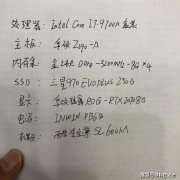 处理器: Intel Core I7-9700K 盒装
主板: 华硕 Z390-A
内存条: DDR4-3200MHz-8G*4
SSD: 三星970 EVO PLUS 250G
显卡: 华硕 ROG-RTX2070 8G
电源: INWIN PB650
机箱: SL600M